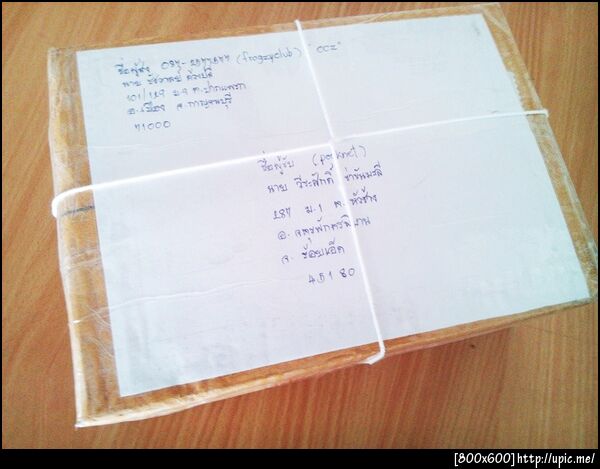 ชื่อผู้ส่ง (frogzyclub) "ccz"
นาย
101/129 ม.9 ต.ปากแพรก
อ.เมือง จ.กาญจนบุรี
71000
ชื่อผู้รับ
นาย วีระศักดิ์
287 ม.1 ต. หัวช้าง
อ. จตุพักตรพิมาน
จ. ร้อยเอ็ด
45180
[800x600]http://upic.me/